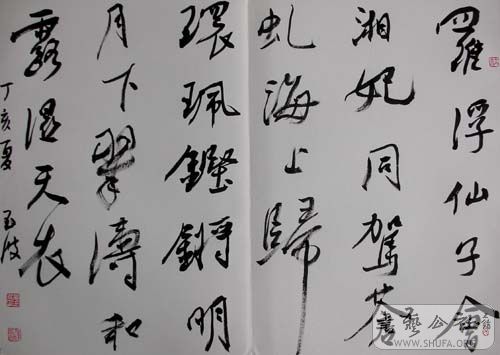 羅浮仙子会
湘妃同駕苍
虬海上歸
環珮鏗鏘明
月下翠濤和
露湿天衣
丁亥夏 玉波
書藝公社
WWW.SHUFA.ORG